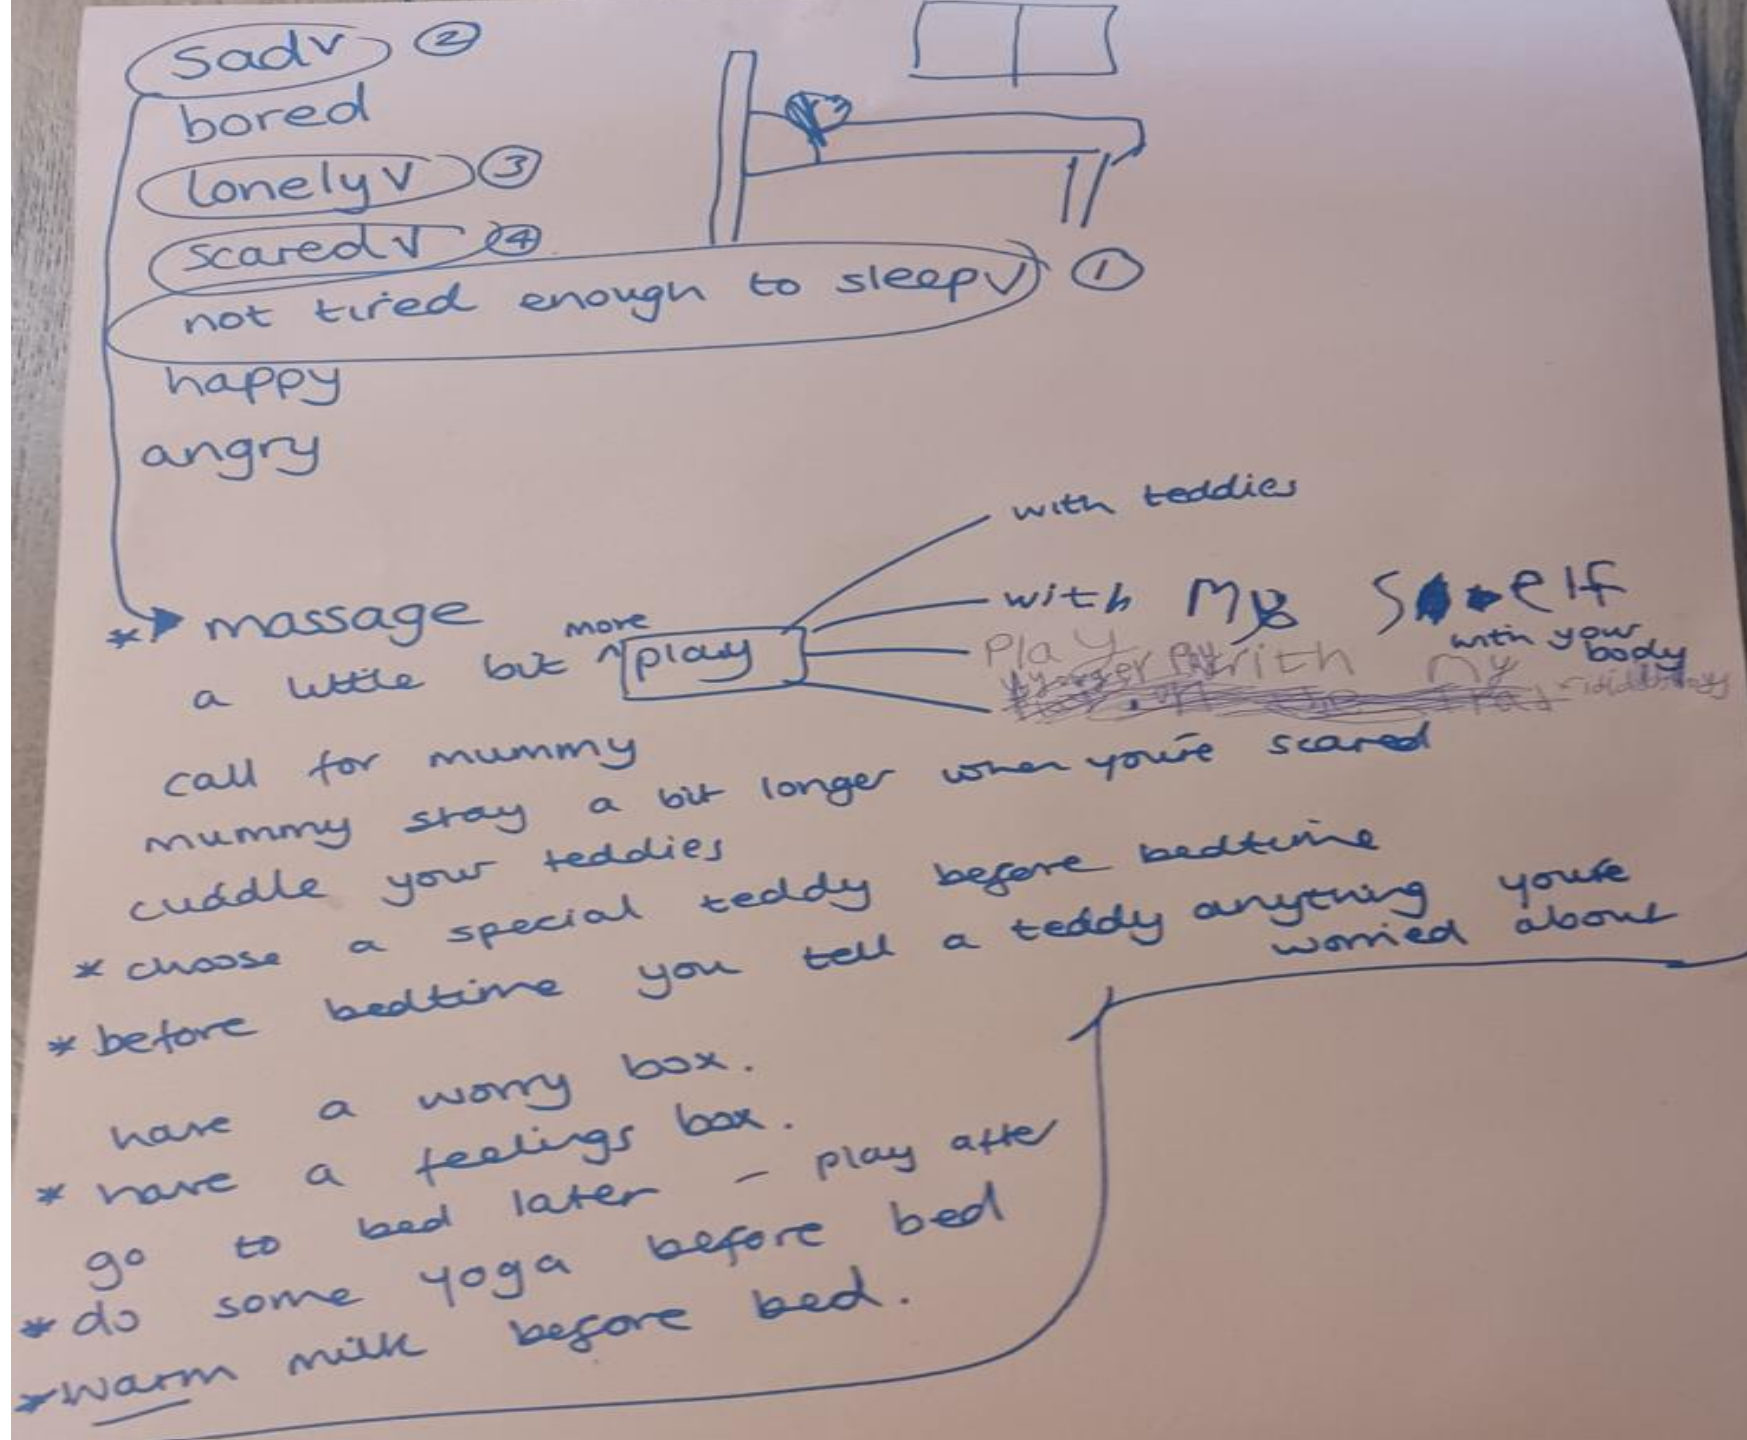 sad ✓ ②
bored
lonely ✓ ③
scared ✓ ④
not tired enough to sleep ✓ ①
happy
angry
with teddies
* massage
with My Self
a little bit ^more play
Play with my
with your body
call for mummy
mummy stay a bit longer when you're scared
cuddle your teddies
* choose a special teddy before bedtime
* before bedtime you tell a teddy anything you're
worried about
have a worry box.
* have a feelings box.
go to bed later - play after
* do some yoga before bed
* warm milk before bed.